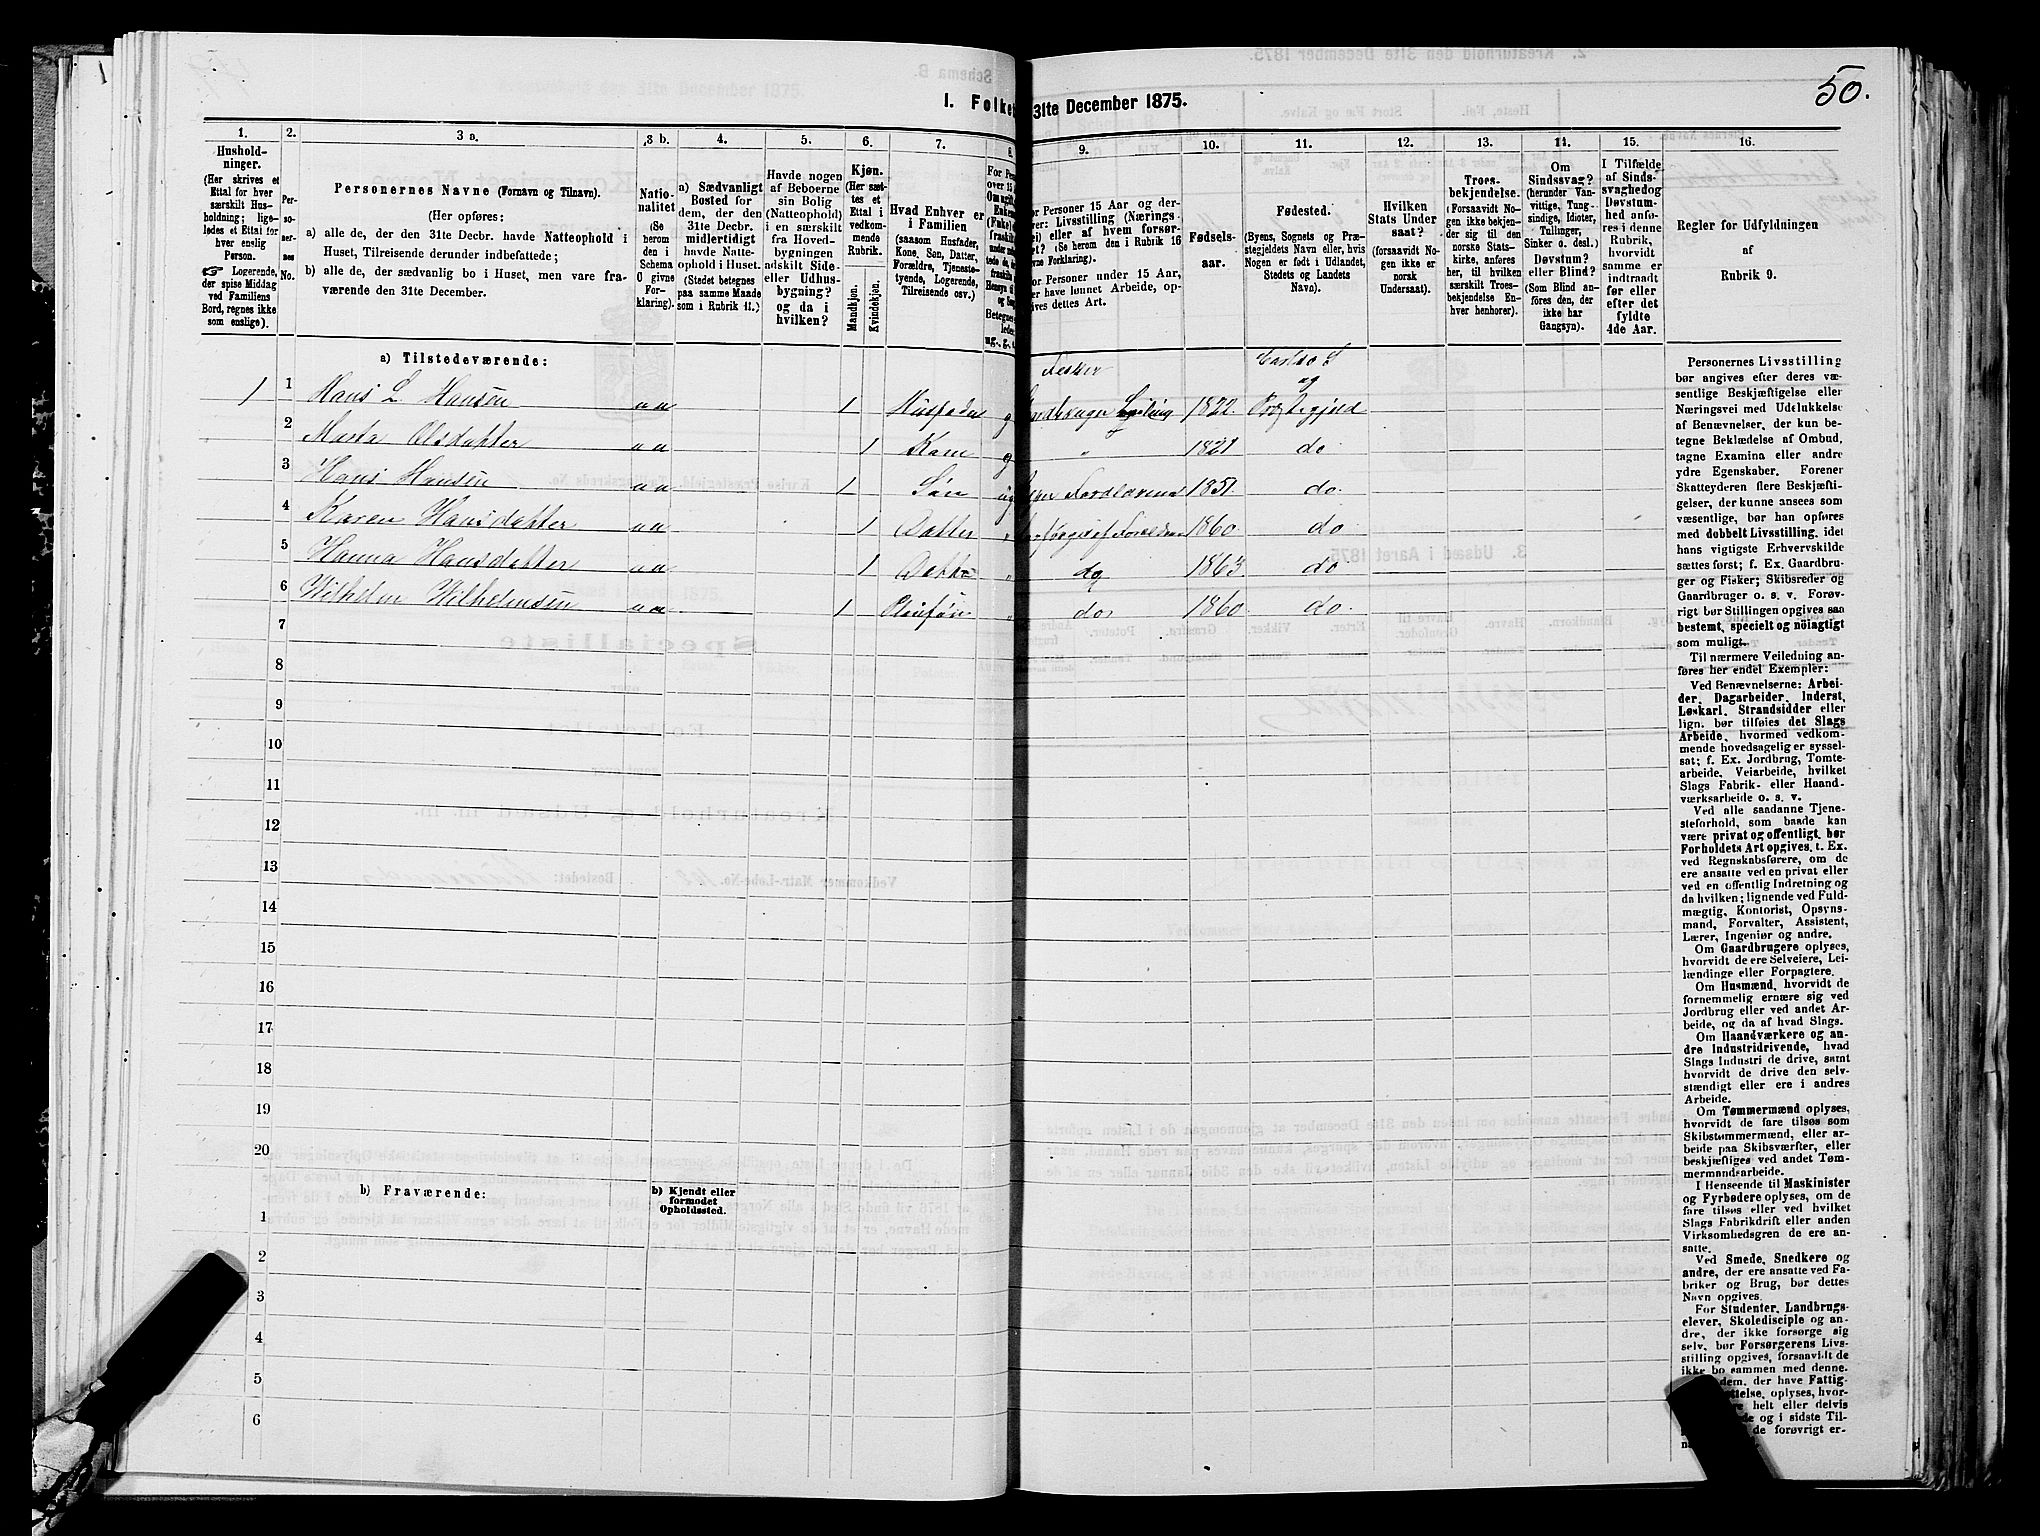 50.
I. Folket
31te December 1875.
1. 2. 3 a. 3 b. 4. 5. 6. 7. 8. 9. 10. 11. 12. 13. 14. 15. 16.
Hushold-
ninger.
(Her skrives et
Ettal for hver
særskilt Hus-
holdning; lige-
ledes et Ettal for
hver enslig
Person.
☞ Logerende,
der spise Middag
ved Familiens
Bord, regnes ikke
som enslige).
Per-
so-
ner-
nes
No.
Personernes Navne (Fornavn og Tilnavn).
(Her opføres:
a) alle de, der den 31te Decbr. havde Natteophold i
Huset, Tilreisende derunder indbefattede;
b) alle de, der sædvanlig bo i Huset, men vare fra-
værende den 31te December.
Natio-
nalitet
(Se
herom
den i
Schema
O givne
For-
klaring).
a) Sædvanligt
Bosted for
dem, der den
31te Decbr.
midlertidigt
havde Natte-
ophold i Huset.
(Stedet betegnes
paa samme Maade
som i Rubrik 11.)
Havde nogen
af Beboerne
sin Bolig
(Natteophold)
i en særskilt
fra Hoved-
bygningen
adskilt Side-
eller Udhus-
bygning?
og da i
hvilken?
Kjøn.
(Her sæt-
tes et
Ettal i
vedkom-
mende
Rubrik.
Mandkjøn.
Kvindekjøn.
Hvad Enhver er
i Familien
(saasom Husfader,
Kone, Søn, Datter,
Forældre, Tjeneste-
tyende, Logerende,
Tilreisende osv.)
or Personer 15 Aar og der-
ver: Livsstilling (Nærings-
ei) eller af hvem forsør-
et? (Se herom den i Rubrik 16
vne Forklaring).
or Personer under 15 Aar,
er have lønnet Arbeide, op-
ives dettes Art.
Fødsels-
aar.
Fødested.
(Byens, Sognets og Præ-
stegjeldets Navn eller, hvis
Nogen er født i Udlandet,
Stedets og Landets
Navn).
Hvilken
Stats Under
saat?
(forsaavidt No-
gen ikke er
norsk
Undersaat).
Troes-
bekjendelse.
(Forsaavidt No-
gen ikke bekjen-
der sig til den
norske Stats-
kirke, anføres
her, til hvilken
særskilt Troes-
bekjendelse En-
hver henhorer).
Om
Sindssvag?
(herunder Van-
vittige, Tung-
sindige, Idioter,
Tullinger,
Sinker o. desl.)
Døvstum?
eller Blind?
(Som Blind an-
føres den, der
ikke har
Gangsyn).
I Tilfælde
af Sinds-
svaghed og
Døvstum-
hed anfø-
res i denne
Rubrik,
hvorvidt
samme er
indtraadt
før eller
efter det
fyldte
4de Aar.
Regler for Udfyldningen
af
Rubrik 9.
a) Tilstedeværende:
Fisker
og
1 1 Hans L Hansen n n 1 Husfader g 1822. Præstegjeld
2 Marta Olsdatter n n 1 Kone g " 1821 do
3 Hans Hansen n n 1 Søn ug 1851. do.
4 Karen Hansdatter n n 1 Datter " 1860. do.
5 Hanna Hansdatter n n 1 " do 1863. do
6 Wilhelm Wilhelmsen n n 1 Pleiesøn " do. 1860. do.
7
8
9
10
11
12
13
14
15
16
17
18
19
20
b) Fraværende:
b) Kjendt eller
formodet
Opholdssted.
1
2
3
4
5
6
Personernes Livsstilling
bør angives efter deres væ-
sentlige Beskjæftigelse eller
Næringsvei med Udelukkelse
af Benævnelser, der kun be-
tegne Beklædelse af Ombud,
tagne Examina eller andre
ydre Egenskaber. Forener
Skatteyderen flere Beskjæfti-
gelser, der kunne ansees som
væsentlige, bør han opføres
med dobbelt Livsstilling, idet
hans vigtigste Erhvervskilde
sættes først; f. Ex. Gaardbru-
ger og Fisker; Skibsreder og
Gaardbruger o. s. v. Forøv-
rigt bør Stillingen opgives saa
bestemt, specielt og nöiagtigt
som muligt.
Til nærmere Veiledning an-
føres her endel Exempler:
Ved Benævnelserne: Arbei-
der, Dagarbeider, Inderst,
Løskarl, Strandsidder eller
lign. bør tilføies det Slags
Arbeide, hvormed vedkom-
mende hovedsagelig er syssel-
sat; f. Ex. Jordbrug, Tomte-
arbeide, Veiarbeide, hvilket
Slags Fabrik- eller Haand-
værksarbeide o. s. v.
Ved alle saadanne Tjene-
steforhold, som baade kan
være privat og offentligt, bør
Forholdets Art opgives, t. Ex.
ved Regnskabsførere, om de
ere ansatte ved en privat eller
ved en offentlig Indretning og
da hvilken; lignende ved Fuld-
mægtig, Kontorist, Opsyns-
mand, Forvalter, Assistent,
Lærer, Ingeniør og andre.
Om Gaardbrugere oplyses,
hvorvidt de ere Selveiere, Lei-
lændinge eller Forpagtere.
Om Husmænd, hvorvidt de
fornemmelig ernære sig ved
Jordbrug eller ved andet Ar-
beide, og da af hvad Slags.
Om Haandværkere og an-
dre Industridrivende, hvad
Slags Industri de drive, samt
hvorvidt de drive den selv-
stændigt eller ere i andres
Arbeide.
Om Tømmermænd oplyses,
hvorvidt de fare tilsøs som
Skibstømmermænd, eller ar-
beide paa Skibsværfter, eller
beskjæftiges ved andet Tøm-
mermandsarbeide.
I Henseende til Maskinister
og Fyrbødere oplyses, om de
fare tilsøs eller ved hvilket
Slags Fabrikdrift eller anden
Virksomhedsgren de ere an-
satte.
Ved Smede, Snedkere og
andre, der ere ansatte ved Fa-
briker og Brug, bør dettes
Navn opgives.
For Studenter, Landbrugs-
elever, Skoledisciple og an-
dre, der ikke forsørge sig
selv, bør Forsørgerens Livs-
stilling opgives, forsaavidt de
ikke bo sammen med denne.
dem, der have Fattig-
oplyses, hvor-
helt eller delvis
og i sidste Til-
de forøvrigt er-